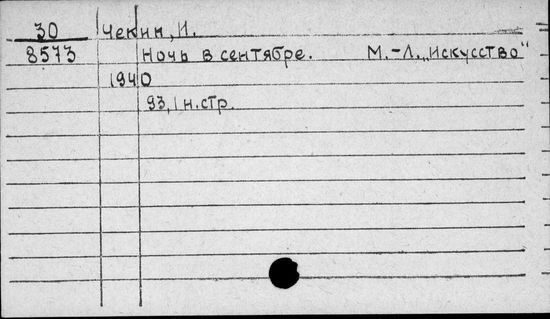 30 Чекин, И.
8573 Ночь в сентябре. М.-Л. „Искусство"
1940
93, 1 н.стр.